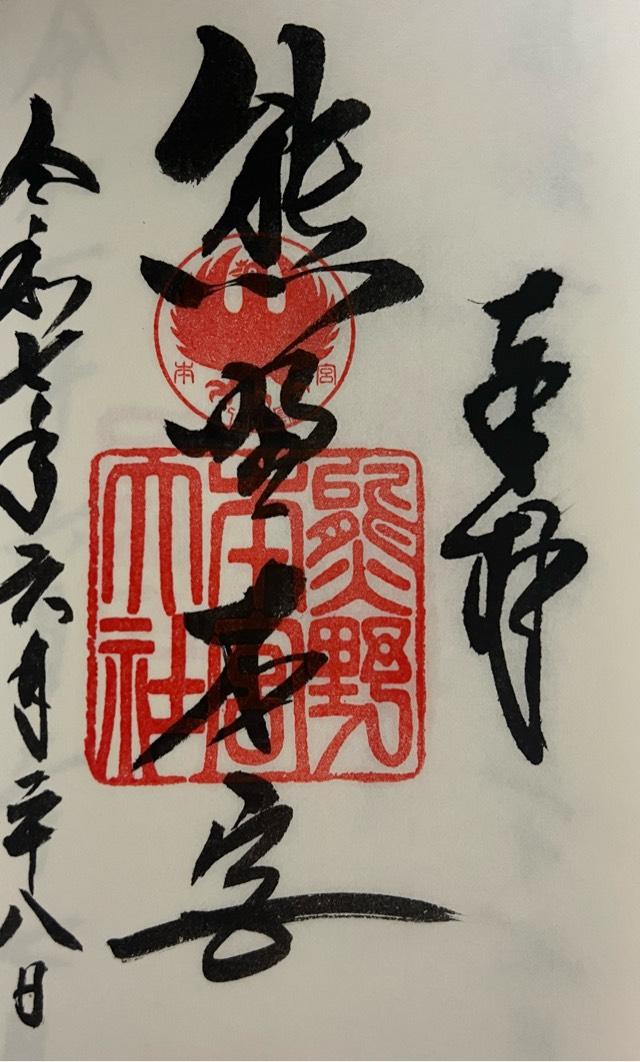 奉拝
熊野本宮
本宮
熊野
本宮
大社
令和七年六月二十八日